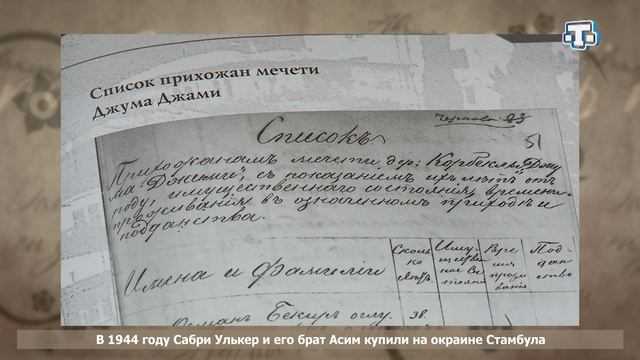 Т
Список прихожан мечети
Джума Джами
Чернова 93
51
Списокъ
Прихожанамъ мечети дер: Корбеклы "Джу
ма-Джами", съ показанiемъ ихъ лѣтъ отъ
роду, имущественнаго состоянiя, времени
проживанiя въ означенномъ приходѣ и
подданства.
Имена и Фамилiи
Сколь
ко
лѣтъ
Иму
ществен
ное Со
стоянiе
Вре
мя
прожи
ванiя
Под
дан
ство
Османъ Бекиръ оглу. 38.
В 1944 году Сабри Улькер и его брат Асим купили на окраине Стамбула